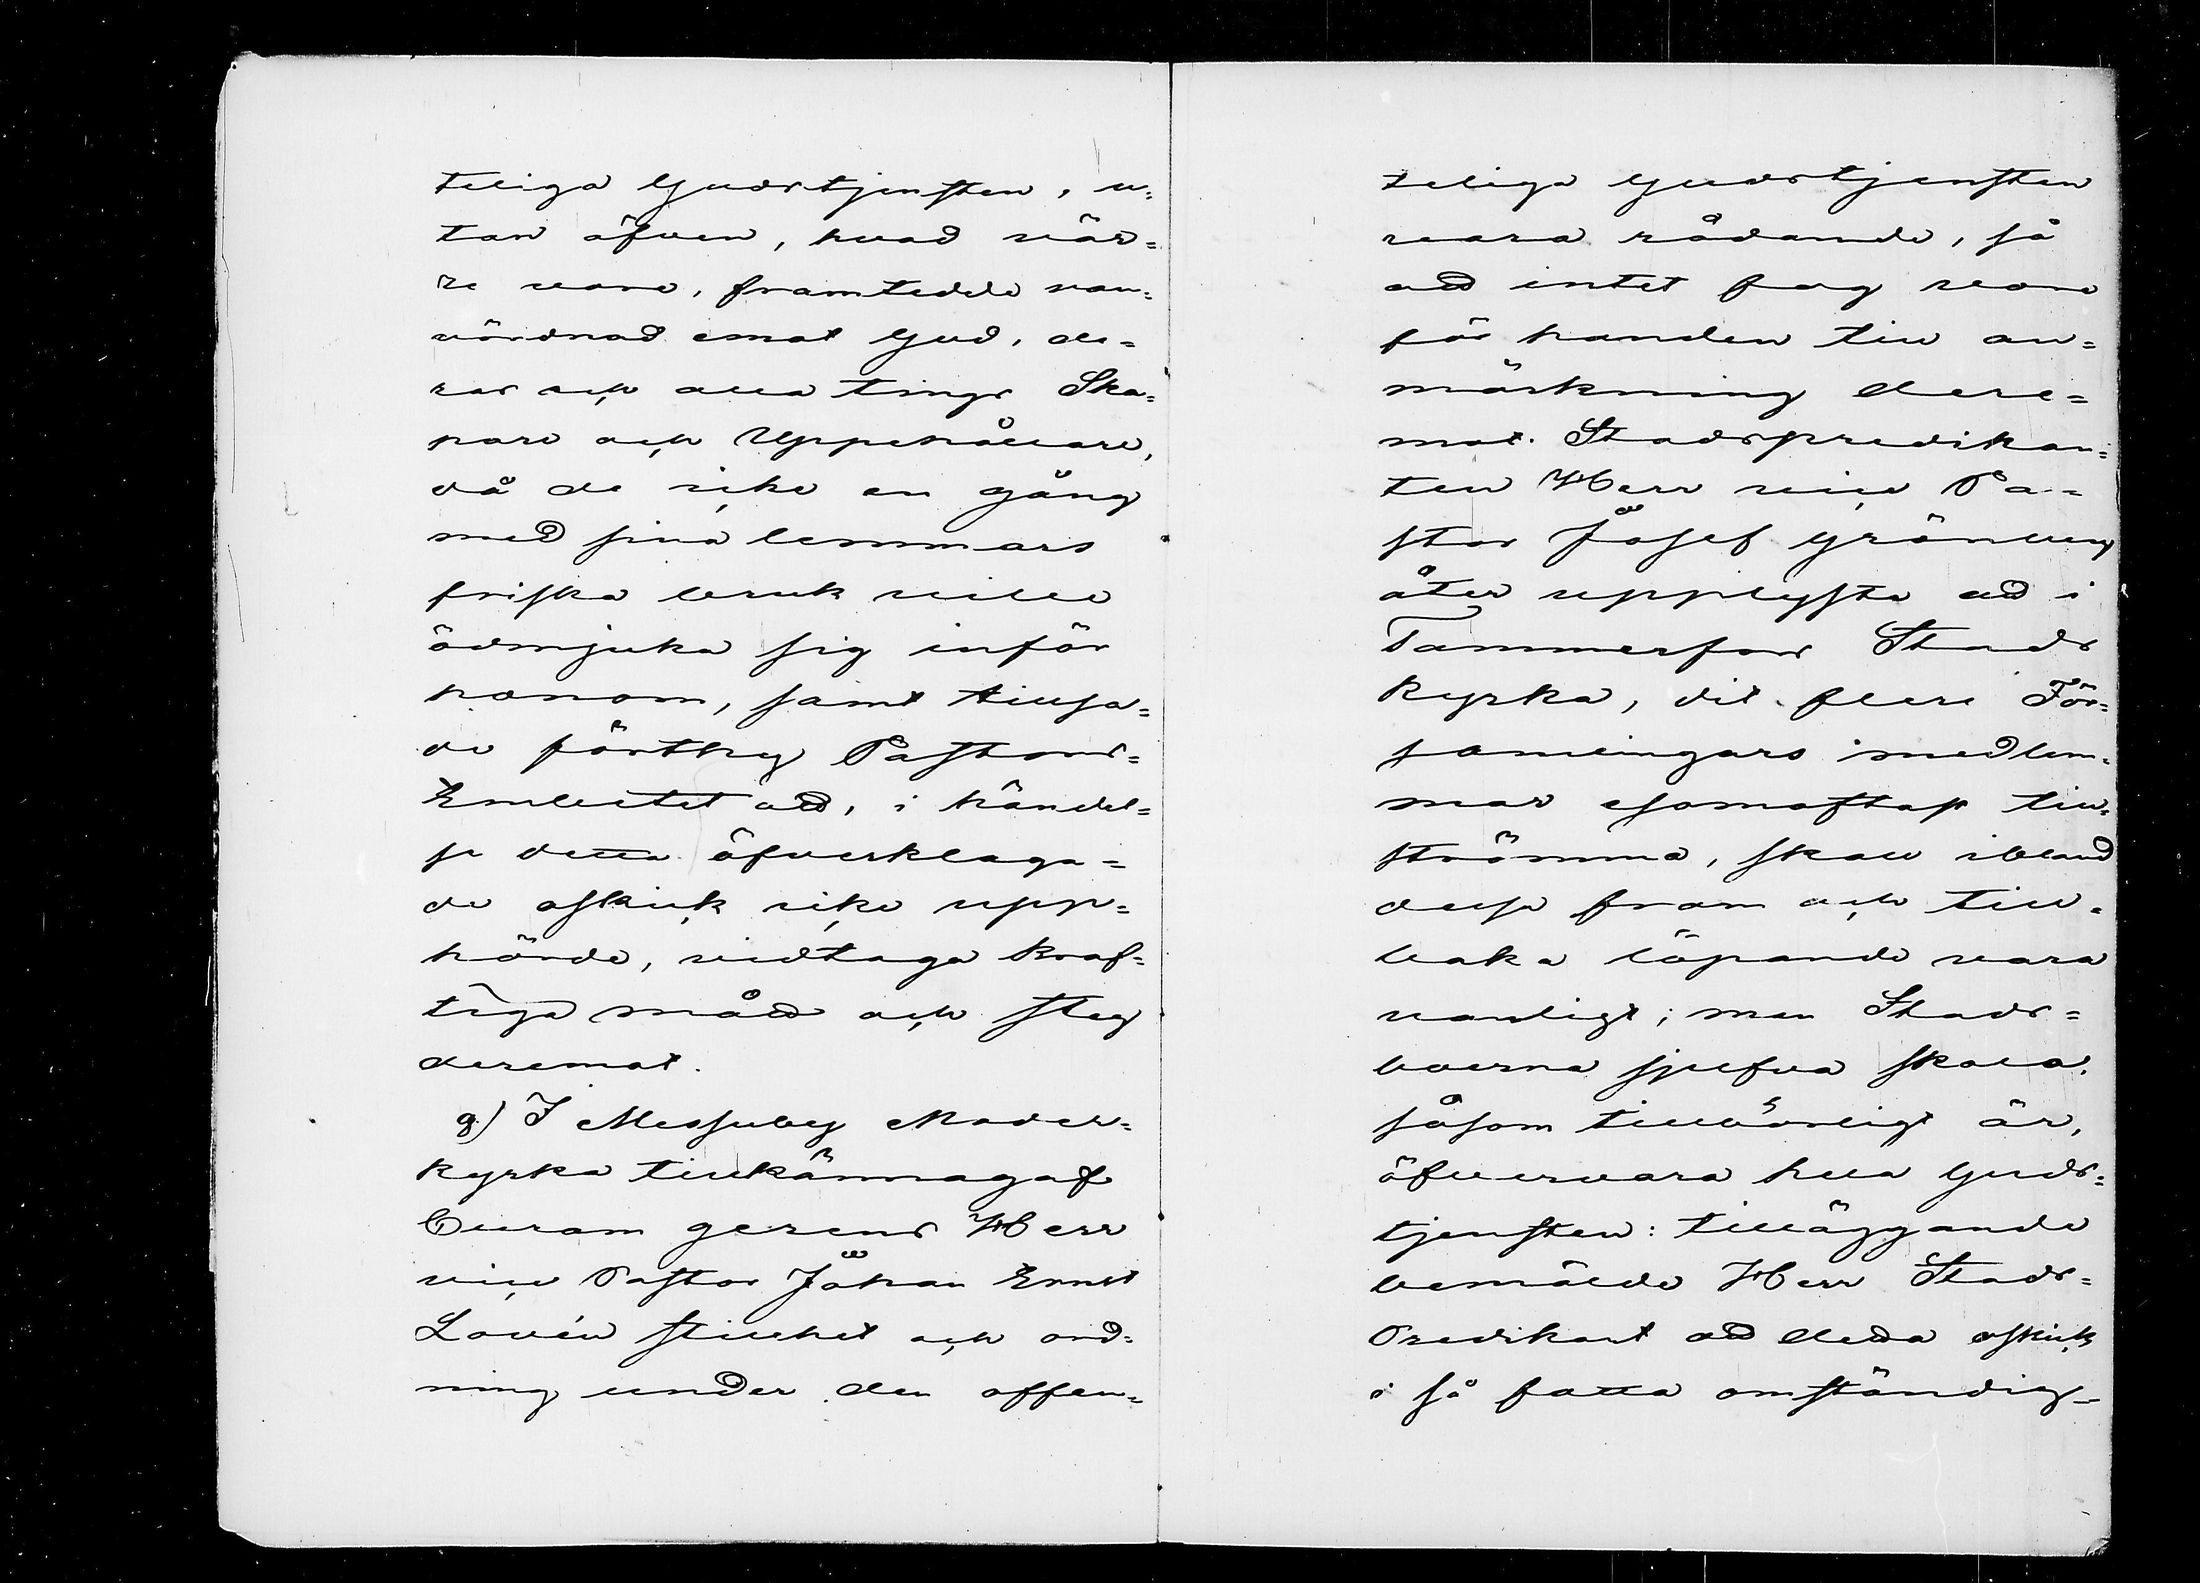 teliga Gudstjensten, u=
tan äfven, hvad vär=
re vore, framtedde van=
vördnad emot Gud, de=
ras och alla tings Ska=
pare och Uppehållare,
då de icke en gång
med sina lemmars
friska bruk ville
ödmjuka sig inför
honom, samt tillsa=
de förthy Pastors=
Embetet att, i händel=
se detta öfverklaga=
de oskick icke upp=
hörde, vidtaga kraf=
tiga mått och steg
deremot.
q) I Messuby Moder=
kyrka tillkännagaf
Curam gerens Herr
vice Pastor Johan Ernst
Lovén stillhet och ord=
ning under den offen=
teliga Gudstjensten
vara rådande, så
att intet fog vore
för handen till an=
märkning dere=
mot. Stadspredikan=
ten Herr vice Pa=
stor Josef Grönberg
åter upplyste att i
Tammerfors Stads
Kyrka, dit flere För=
samlingars medlem=
mar esomoftast till=
strömma, skall ibland
dessa fram och till=
baka löpande vara
vanligt; men Stads=
boerna sjelfva skola,
såsom tillbörligt är,
öfvervara hela Guds=
tjensten: tilläggande
bemälde Herr Stads=
Predikant att detta oskick
i så fatta omständig=